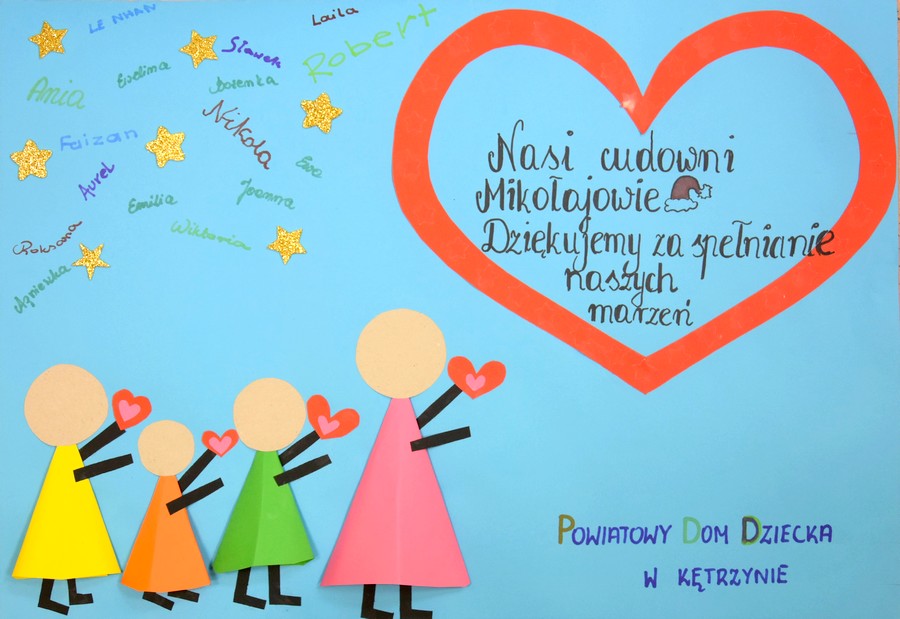 LE NHAN
Laila
Sławek
Robert
Ewelina
Dorenka
Ania
Nikola
Faizan
Ewa
Aurel
Joanna
Emilia
Wiktoria
Roksana
Agnieszka
Nasi cudowni
Mikołajowie
Dziękujemy za spełnianie
naszych
marzeń
POWIATOWY DOM DZIECKA
W KĘTRZYNIE